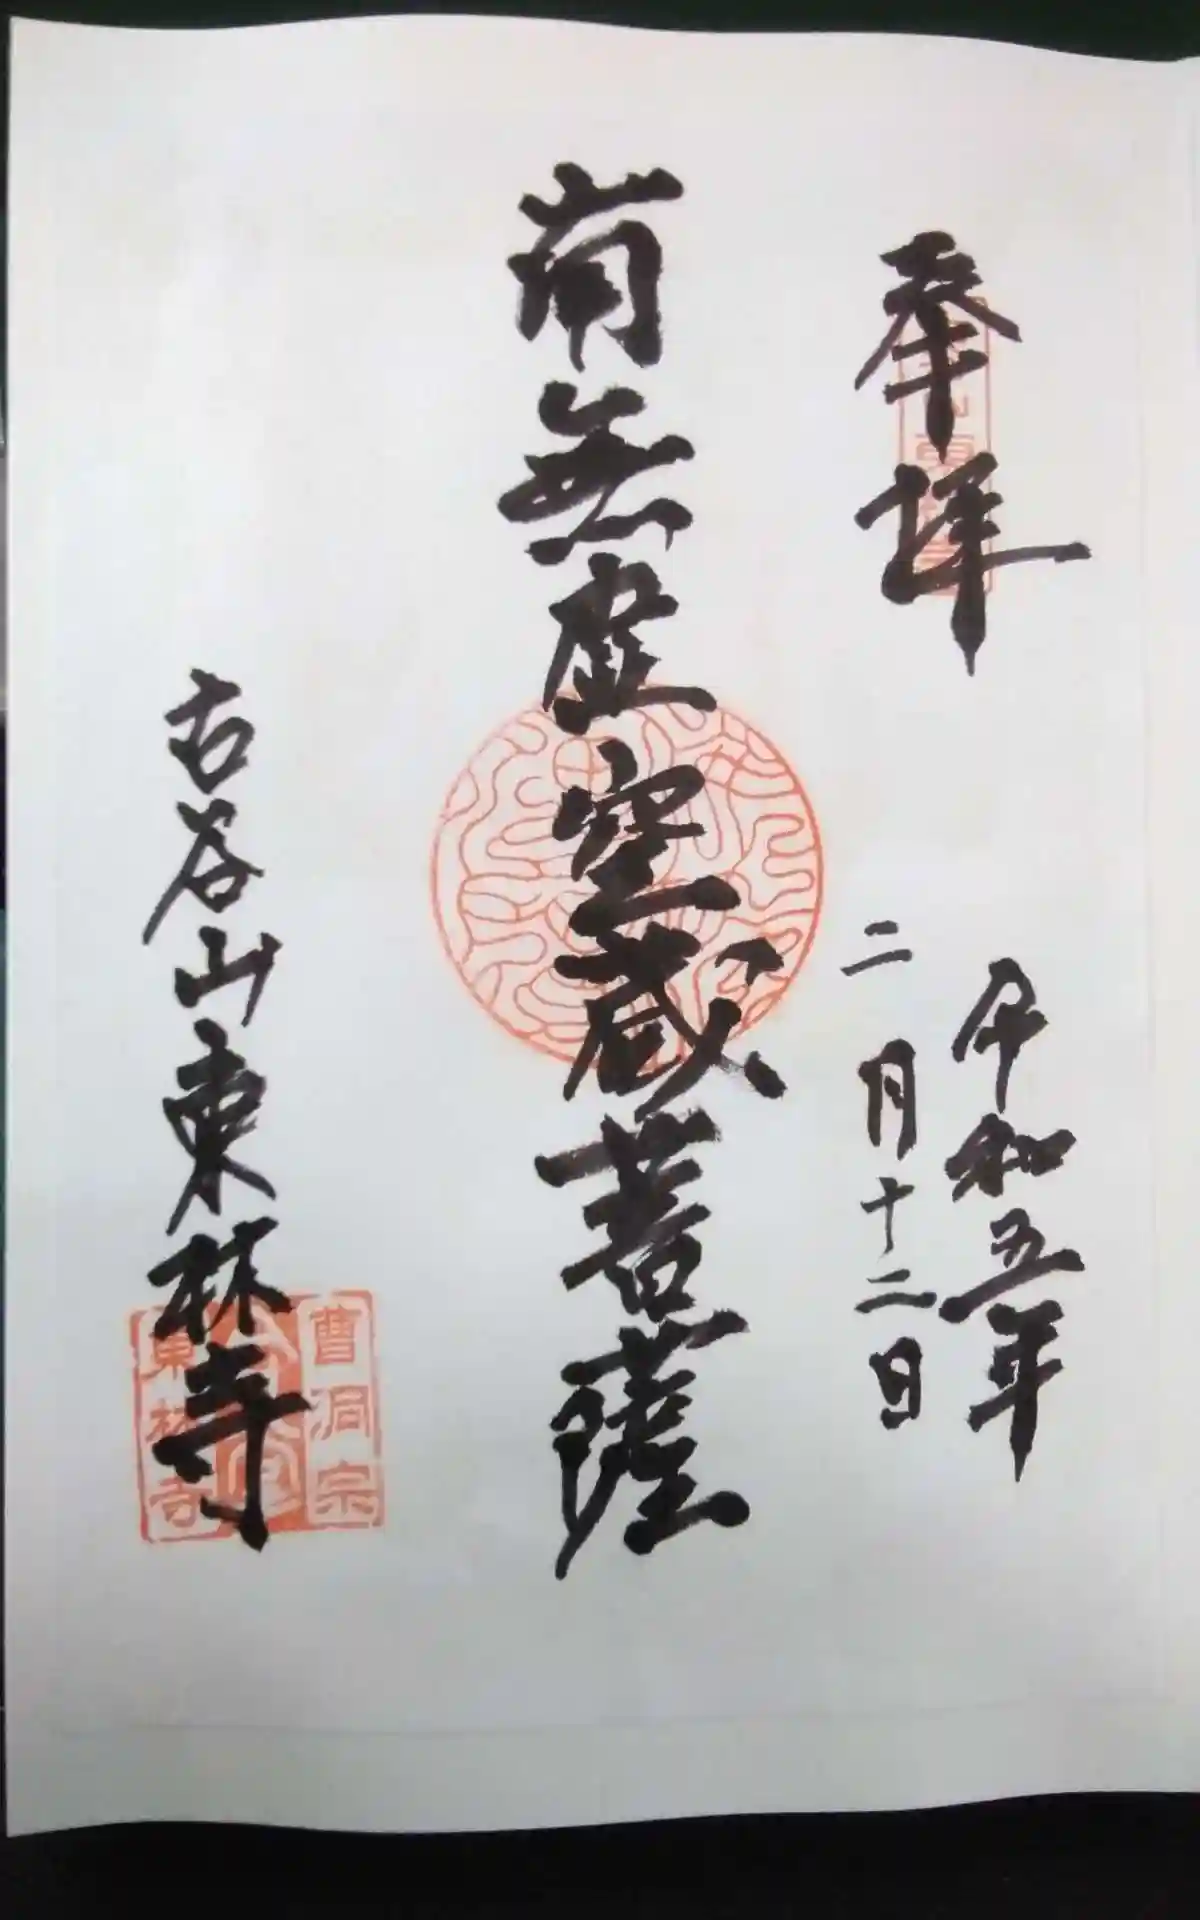 奉拝
令和五年
二月十二日
南無虚空蔵菩薩
古谷山東林寺
曹洞宗
東林寺